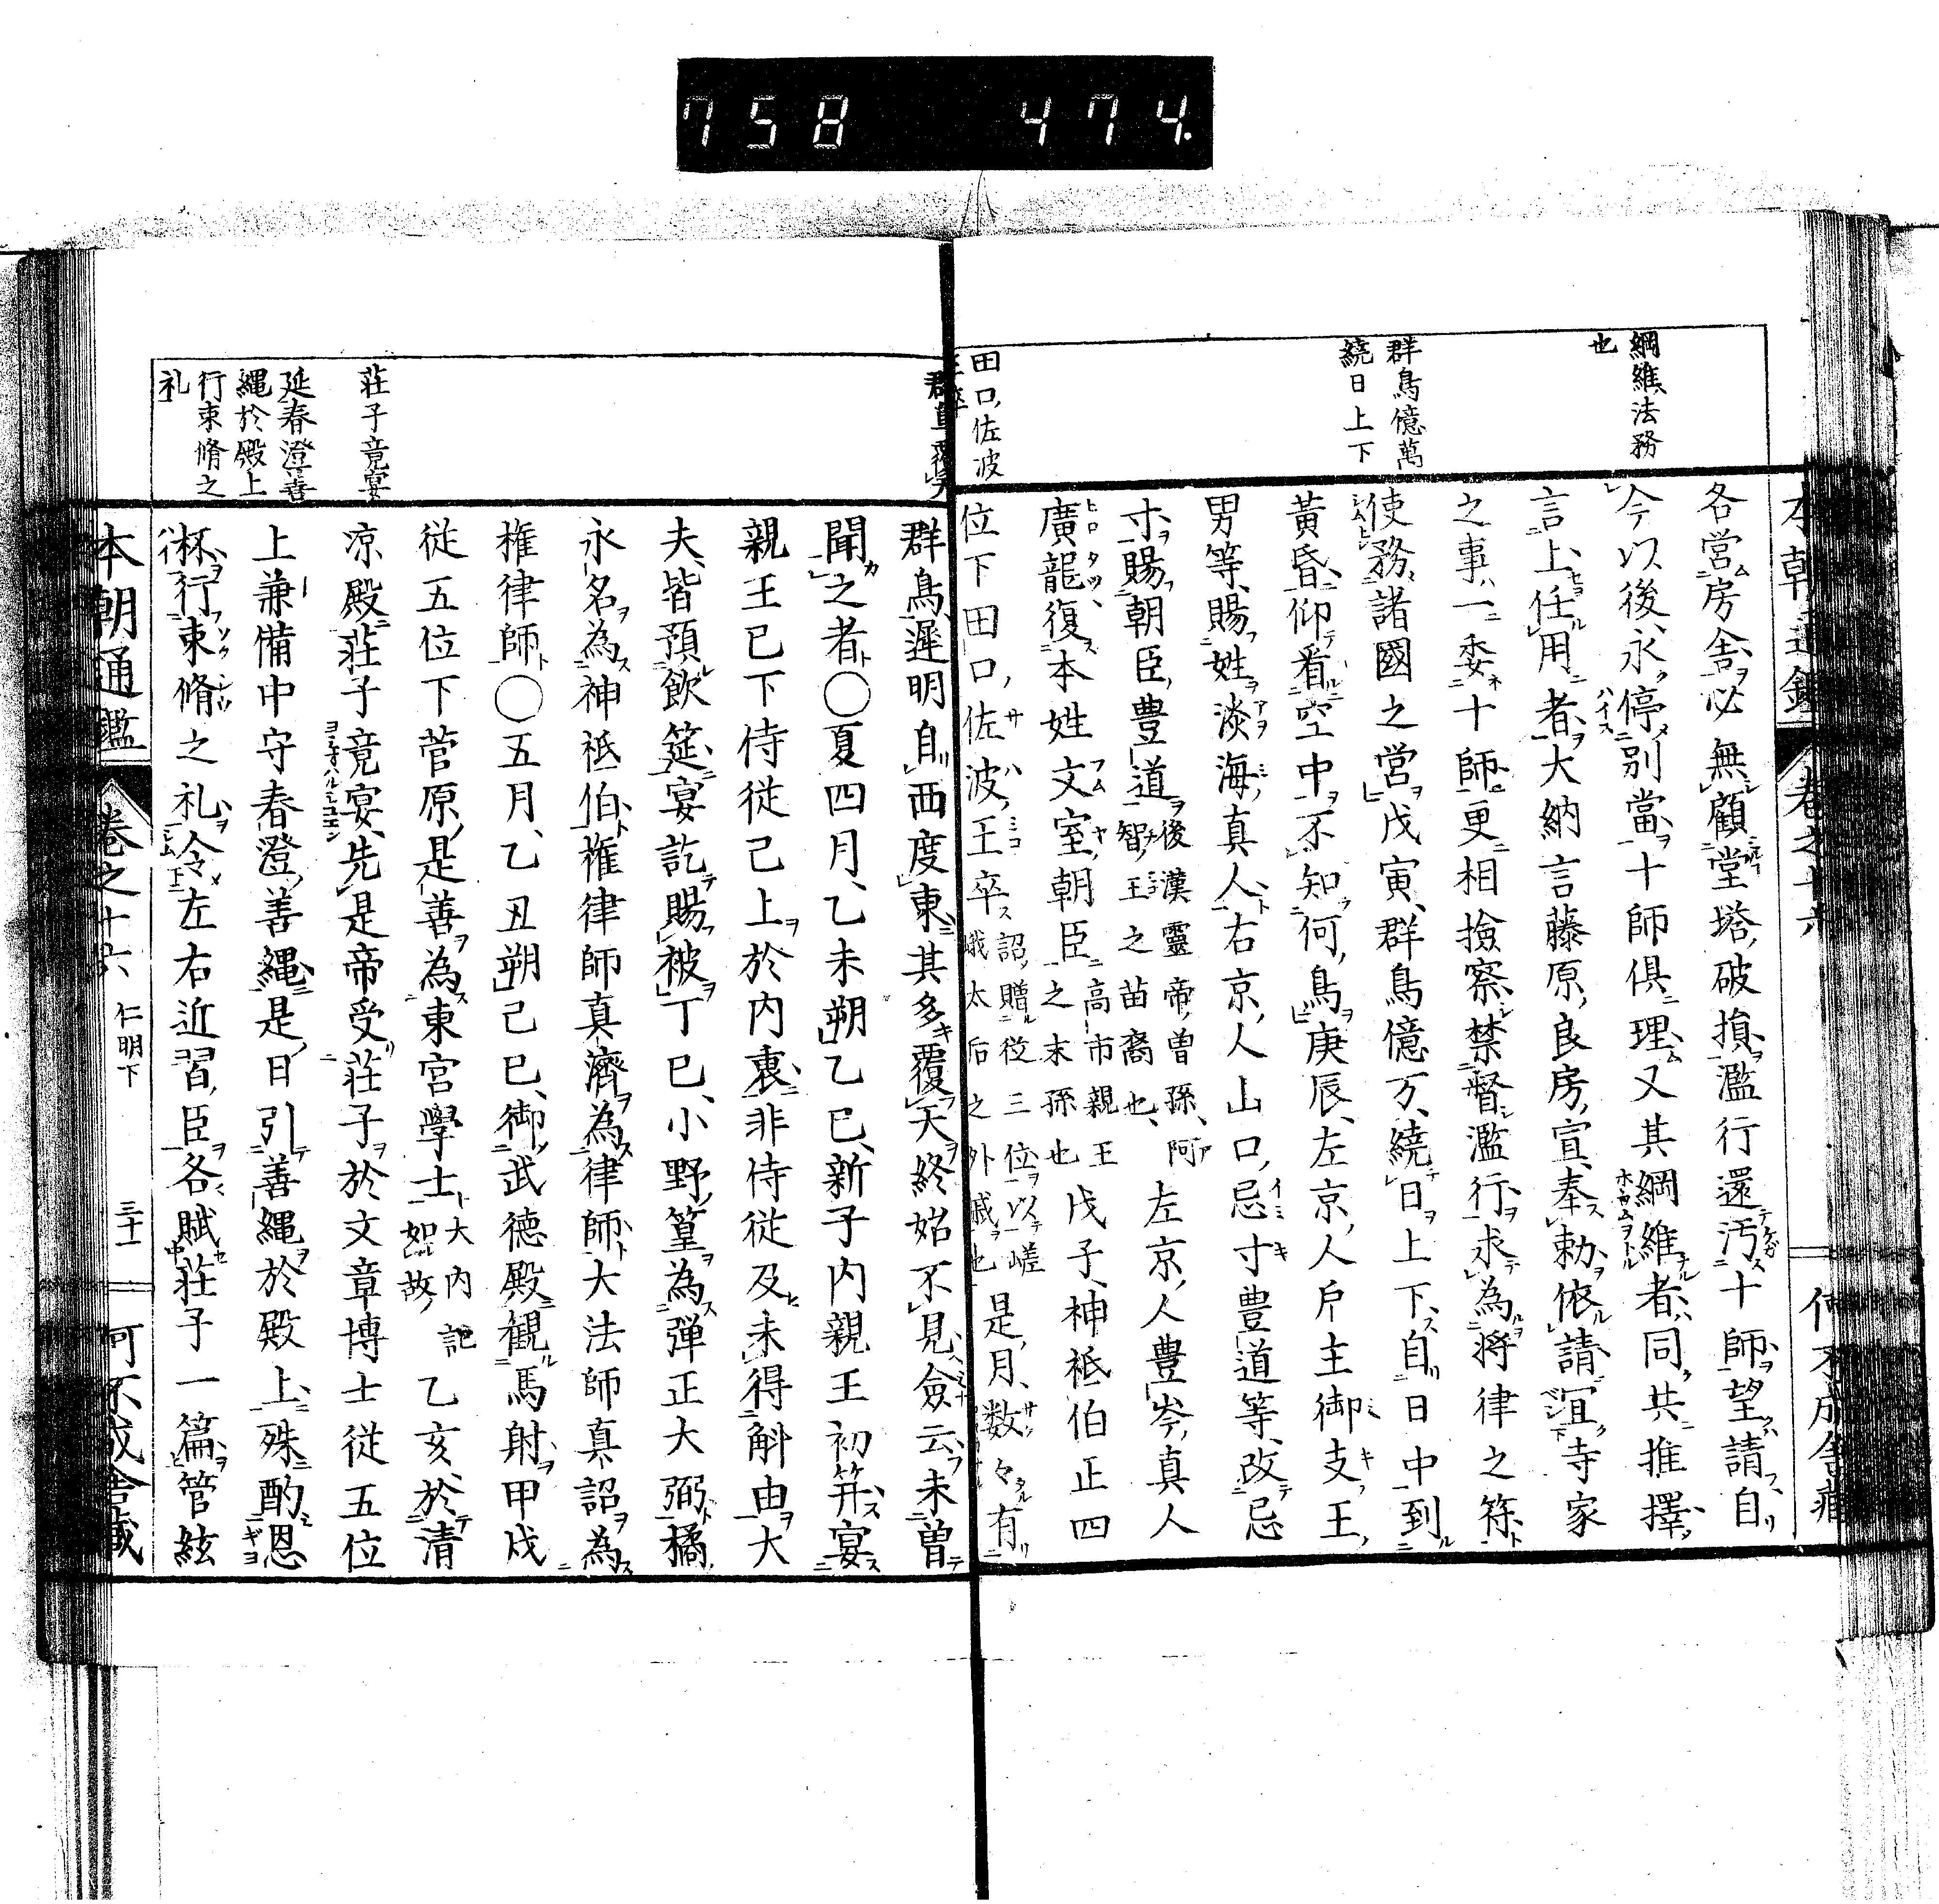 758 474.
本朝通鑑 卷之十六
綱維法務
也
群鳥億萬
繞日上下
田口佐波
王卒
各営房舎必無顧堂塔破損濫行還汚十師望請自
今以後永停別當十師俱理又其綱維者同共推擇
言上任用者大納言藤原良房宣奉勅依請宜寺家
之事一委十師更相撿察禁督濫行求為將律之筞
使務諸國之営戊寅群鳥億万繞日上下自日中到
黃昏仰看空中不知何鳥庚辰左京人戶主御支王
男等賜姓淡海真人右京人山口忌寸豊道等改忌
寸賜朝臣豊道後漢靈帝曽孫阿
智王之苗裔也左京人豊岑真人
廣龍復本姓文室朝臣高市親王
之末孫也戊子神祗伯正四
位下田口佐波王卒詔贈従三位以嵯
峨太后之外戚也是月数々有
群鳥覆天
荘子竟宴
延春澄善
縄於殿上
行束脩之
礼
群鳥遲明自西度東其多覆天終始不見僉云未曽
聞之者〇夏四月乙未朔乙巳新子内親王初笄宴
親王已下侍従己上於内裏非侍従及未得解由大
夫皆預飲筵宴訖賜被丁巳小野篁為弾正大弼橘
永名為神祗伯権律師真濟為律師大法師真詔為
権律師〇五月乙丑朔己巳御武徳殿観馬射甲戌
従五位下菅原是善為東宮學士大内記
如故乙亥於清
凉殿荘子竟宴先是帝受荘子於文章博士従五位
上兼備中守春澄善縄是日引善縄於殿上殊酌恩
杯行束脩之礼令左右近習臣各賦荘子一篇管絃
本朝通鑑 卷之十六 仁明下 三十一 何不成舎蔵